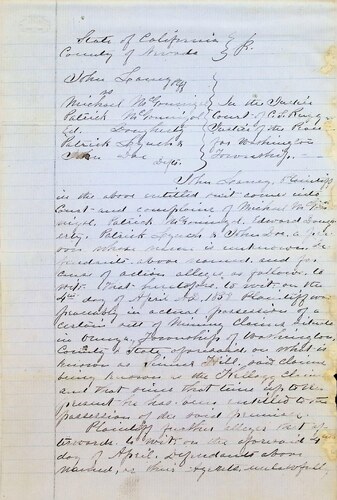 State of California
County of Nevada
John Laney Plff
vs
Michael McGonigal In the Justice
Patrick McGonigal Court of
Ed. Dougherty Justice of the Peace
Patrick Lynch & for Washington
John Doe Township.
Defts.
John Laney, Plaintiff
in the above entitled suit comes into
Court and complains of Michael McGo-
nigal, Patrick McGonigal, Edward Dough-
erty, Patrick Lynch & John Doe, a per-
son whose name is unknown, De-
fendants above named, and for
cause of action alleges as follows to
wit. That heretofore to wit, on the
4th day of April A.D. 1859 Plaintiff was
peaceably in actual possession of a
certain sett of Mining Claims situate
in Township of Washington,
County & State aforesaid, on what is
known as Hill, said claims
being known as the Claims
and that since that time up to the
present he has been entitled to the
possession of the said premises.
Plaintiff further alleges that af-
terwards to wit, on the aforesaid 4th
day of April, Defendants above
named, or their agents, unlawfully